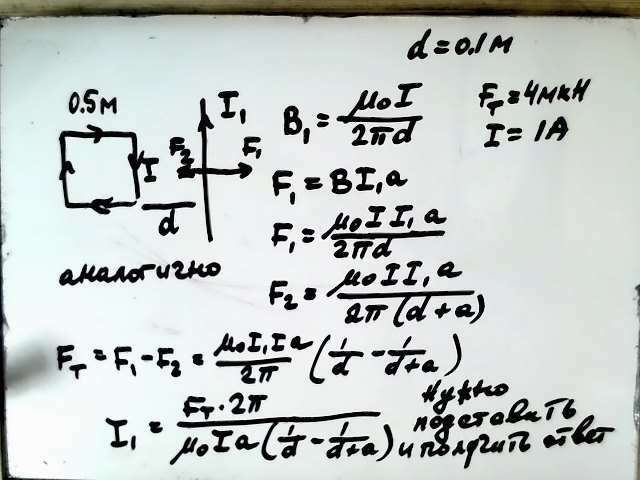 d = 0.1м
0.5м
I₁
B₁ = μ₀I / 2πd
Fт = 4мкН
I = 1А
F₂
F₁
I
d
F₁ = BI₁a
F₁ = μ₀ I I₁ a / 2πd
аналогично
F₂ = μ₀ I I₁ a / 2π(d+a)
Fт = F₁ - F₂ = μ₀I₁Ia / 2π (1/d - 1/d+a)
I₁ = Fт·2π / μ₀Ia(1/d - 1/d+a)
нужно
подставить
и получить ответ